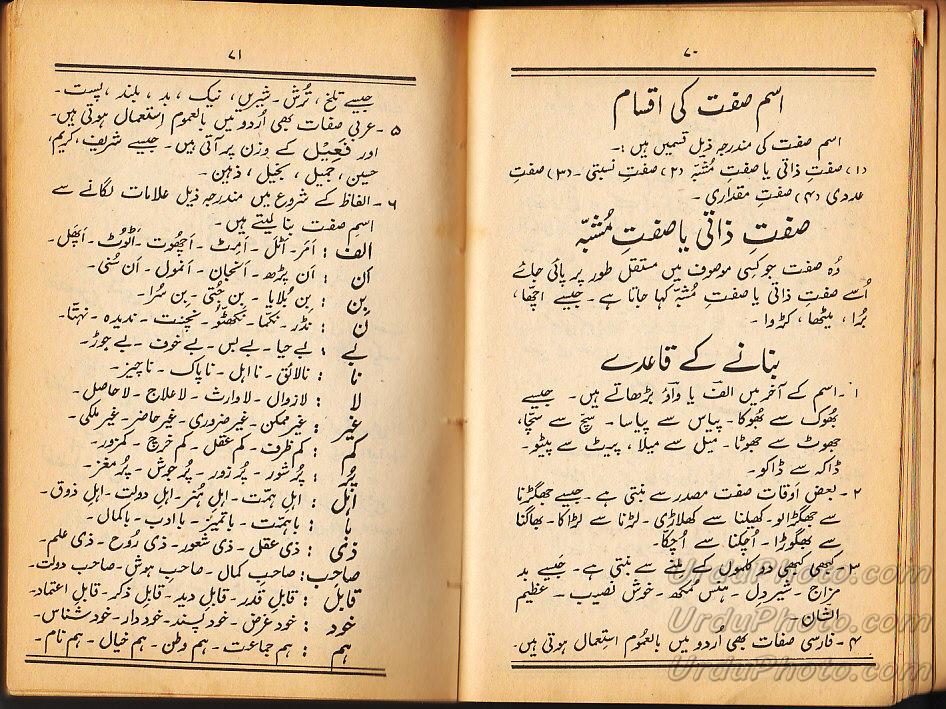 ۷۰
اسم صفت کی اقسام
اسم صفت کی مندرجہ ذیل قسمیں ہیں :۔
(۱) صفتِ ذاتی یا صفتِ مُشبّہ (۲) صفتِ نسبتی ۔ (۳) صفتِ
عددی (۴) صفتِ مقداری ۔
صفتِ ذاتی یا صفتِ مُشبّہ
وُہ صفت جو کسِی موصوف میں مستقل طور پر پائی جائے
اُسے صفتِ ذاتی یا صفتِ مُشبّہ کہا جاتا ہے ۔ جیسے اچھّا ،
بُرا ، میٹھا ، کڑوا ۔
بنانے کے قاعدے
۱ ۔ اسم کے آخر میں الف یا واؤ بڑھاتے ہیں ۔ جیسے
بھُوک سے بھُوکا ۔ پیاس سے پیاسا ۔ سچ سے سچّا ،
جھوٹ سے جھوٹا ۔ میل سے میلا ، پیٹ سے پیٹو ۔
ڈاکہ سے ڈاکو ۔
۲ ۔ بعض اوقات صفت مصدر سے بنتی ہے ۔ جیسے جھگڑنا
سے جھگڑالو ۔ کھیلنا سے کھلاڑی ۔ لڑنا سے لڑاکا ۔ بھاگنا
سے بھگوڑا ۔ اُچکنا سے اُچکّا ۔
۳ ۔ کبھی کبھی دو کلموں کے ملنے سے بنتی ہے ۔ جَیسے بد
مزاج ۔ شیر دِل ۔ ہنس مُکھ ۔ خوش نصیب ۔ عظیم
الشّان ۔
۴ ۔ فارسی صفات بھی اُردو میں بالعموم اِستعمال ہوتی ہیں ۔
۷۱
جیسے تلخ ، تُرش ۔ شیریں ، نیک ، بد ، بلند ، پست ۔
۵ ۔ عربی صفات بھی اُردو میں بالعموم اِستعمال ہوتی ہیں ۔
اور فَعِیْل کے وزن پر آتی ہیں ۔ جیسے شریف ، کریم ،
حسین ، جمیل ، بخیل ، ذہین ۔
۶ ۔ الفاظ کے شروع میں مندرجہ ذیل علامات لگانے سے
اسم صفت بنا لیتے ہیں ۔
الف : اَمَر ۔ اَٹل ۔ اَمِٹ ۔ اَچھُوت ۔ اَٹوُٹ ۔ اَپھَل ۔
اَن : اَن پڑھ ۔ اَنجان ۔ اَنمول ۔ اَن سُنی ۔
بِن : بِن بُلایا ۔ بِن جُتی ۔ بِن سَرا ۔
نِ : نِڈر ۔ نکمّا ۔ نِکھٹّو ۔ نچنت ۔ ندیدہ ۔ نہتّا ۔
بے : بے حیا ۔ بے بس ۔ بے خوف ۔ بے جوڑ ۔
نا : نالائق ۔ نااہل ۔ ناپاک ۔ ناچیز ۔
لا : لازوال ۔ لاوارث ۔ لاعلاج ۔ لاحاصل ۔
غیر : غیر ممکن ۔ غیر ضروری ۔ غیر حاضر ۔ غیر ملکی ۔
کم : کم ظرف ۔ کم عقل ۔ کم خرچ ۔ کمزور ۔
پُر : پُر شور ۔ پُر زور ۔ پُر جوش ۔ پُر مغز ۔
اہل : اہلِ ہمّت ۔ اہلِ ہُنر ۔ اہلِ دولت ۔ اہلِ ذوق ۔
با : باہمّت ۔ باتمیز ۔ باادب ۔ باکمال ۔
ذی : ذی عقل ۔ ذی شعور ۔ ذی رُوح ۔ ذی علم ۔
صاحب : صاحبِ کمال ۔ صاحبِ ہوش ۔ صاحب دولت ۔
قابل : قابلِ قدر ۔ قابلِ دید ۔ قابلِ ذکر ۔ قابلِ اعتماد ۔
خود : خود غرض ۔ خود پسند ۔ خوددار ۔ خودشناس ۔
ہم : ہم جماعت ۔ ہم وطن ۔ ہم خیال ۔ ہم نام ۔
UrduPhoto.com
UrduPhoto.com
UrduPhoto.com